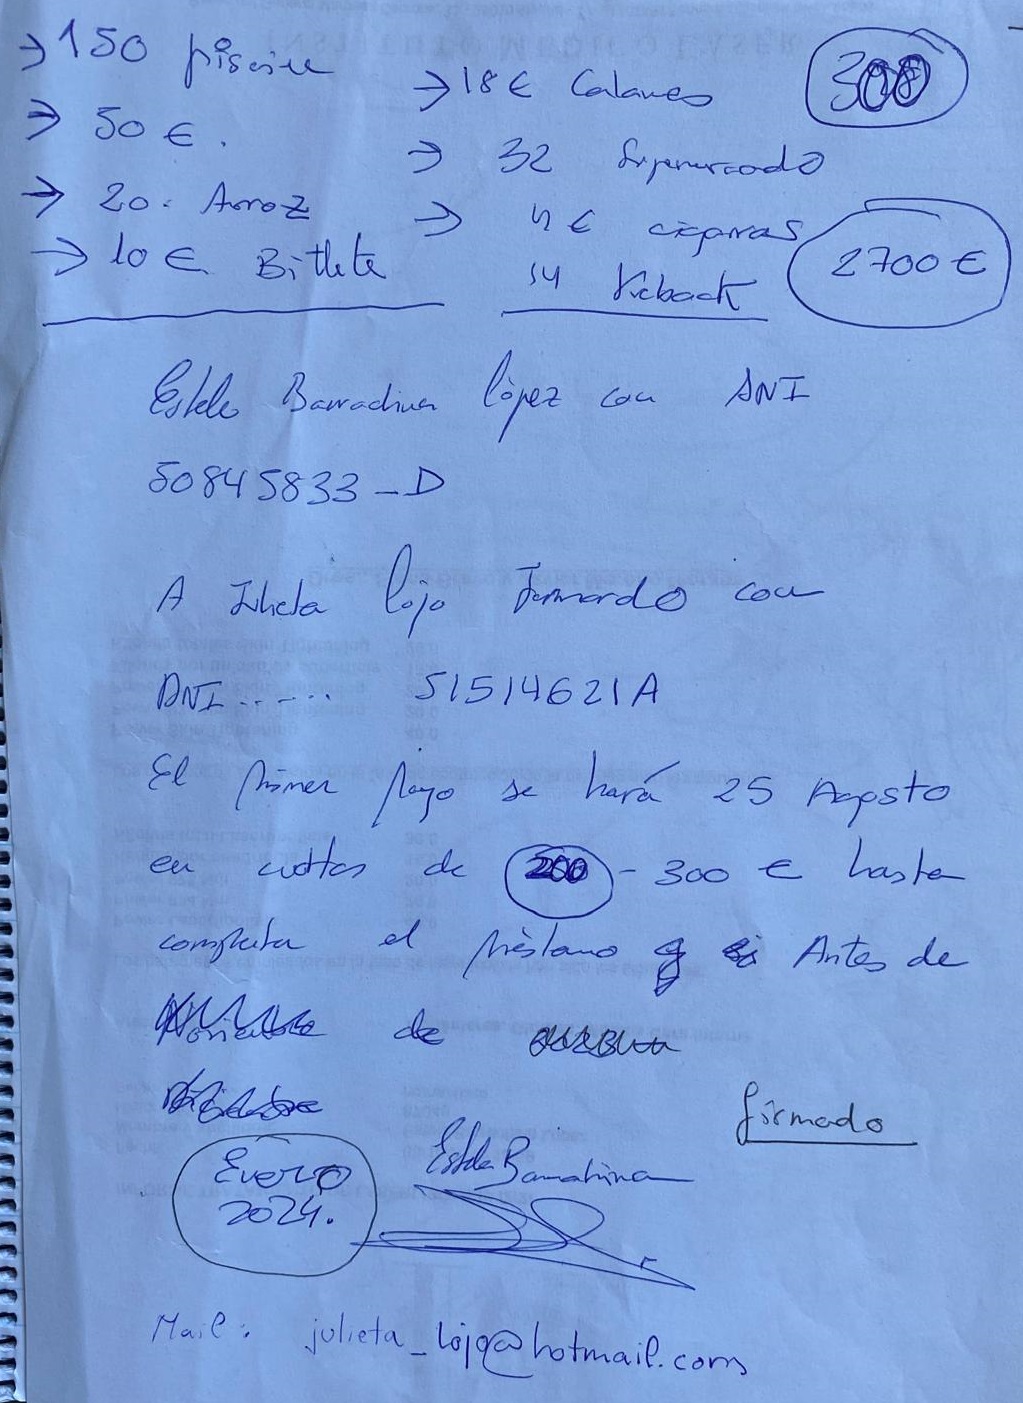 → 150 piscine
→ 50 €.
→ 20. Arroz
→ 10 € Billete
→ 18 € Calames
→ 32 Supermercado
→ 4 € cigarras
14 Keback
308
2700 €
Estela Barrachina López con DNI
50845833-D
A Julieta Lojo Fernando con
DNI...... 51514621A
El primer pago se hará 25 Agosto
en cuotas de 200 - 300 € hasta
completar el préstamo Antes de
de
Enero
2024.
firmado
Estela Barrachina
Mail: julieta_lojo@hotmail.com